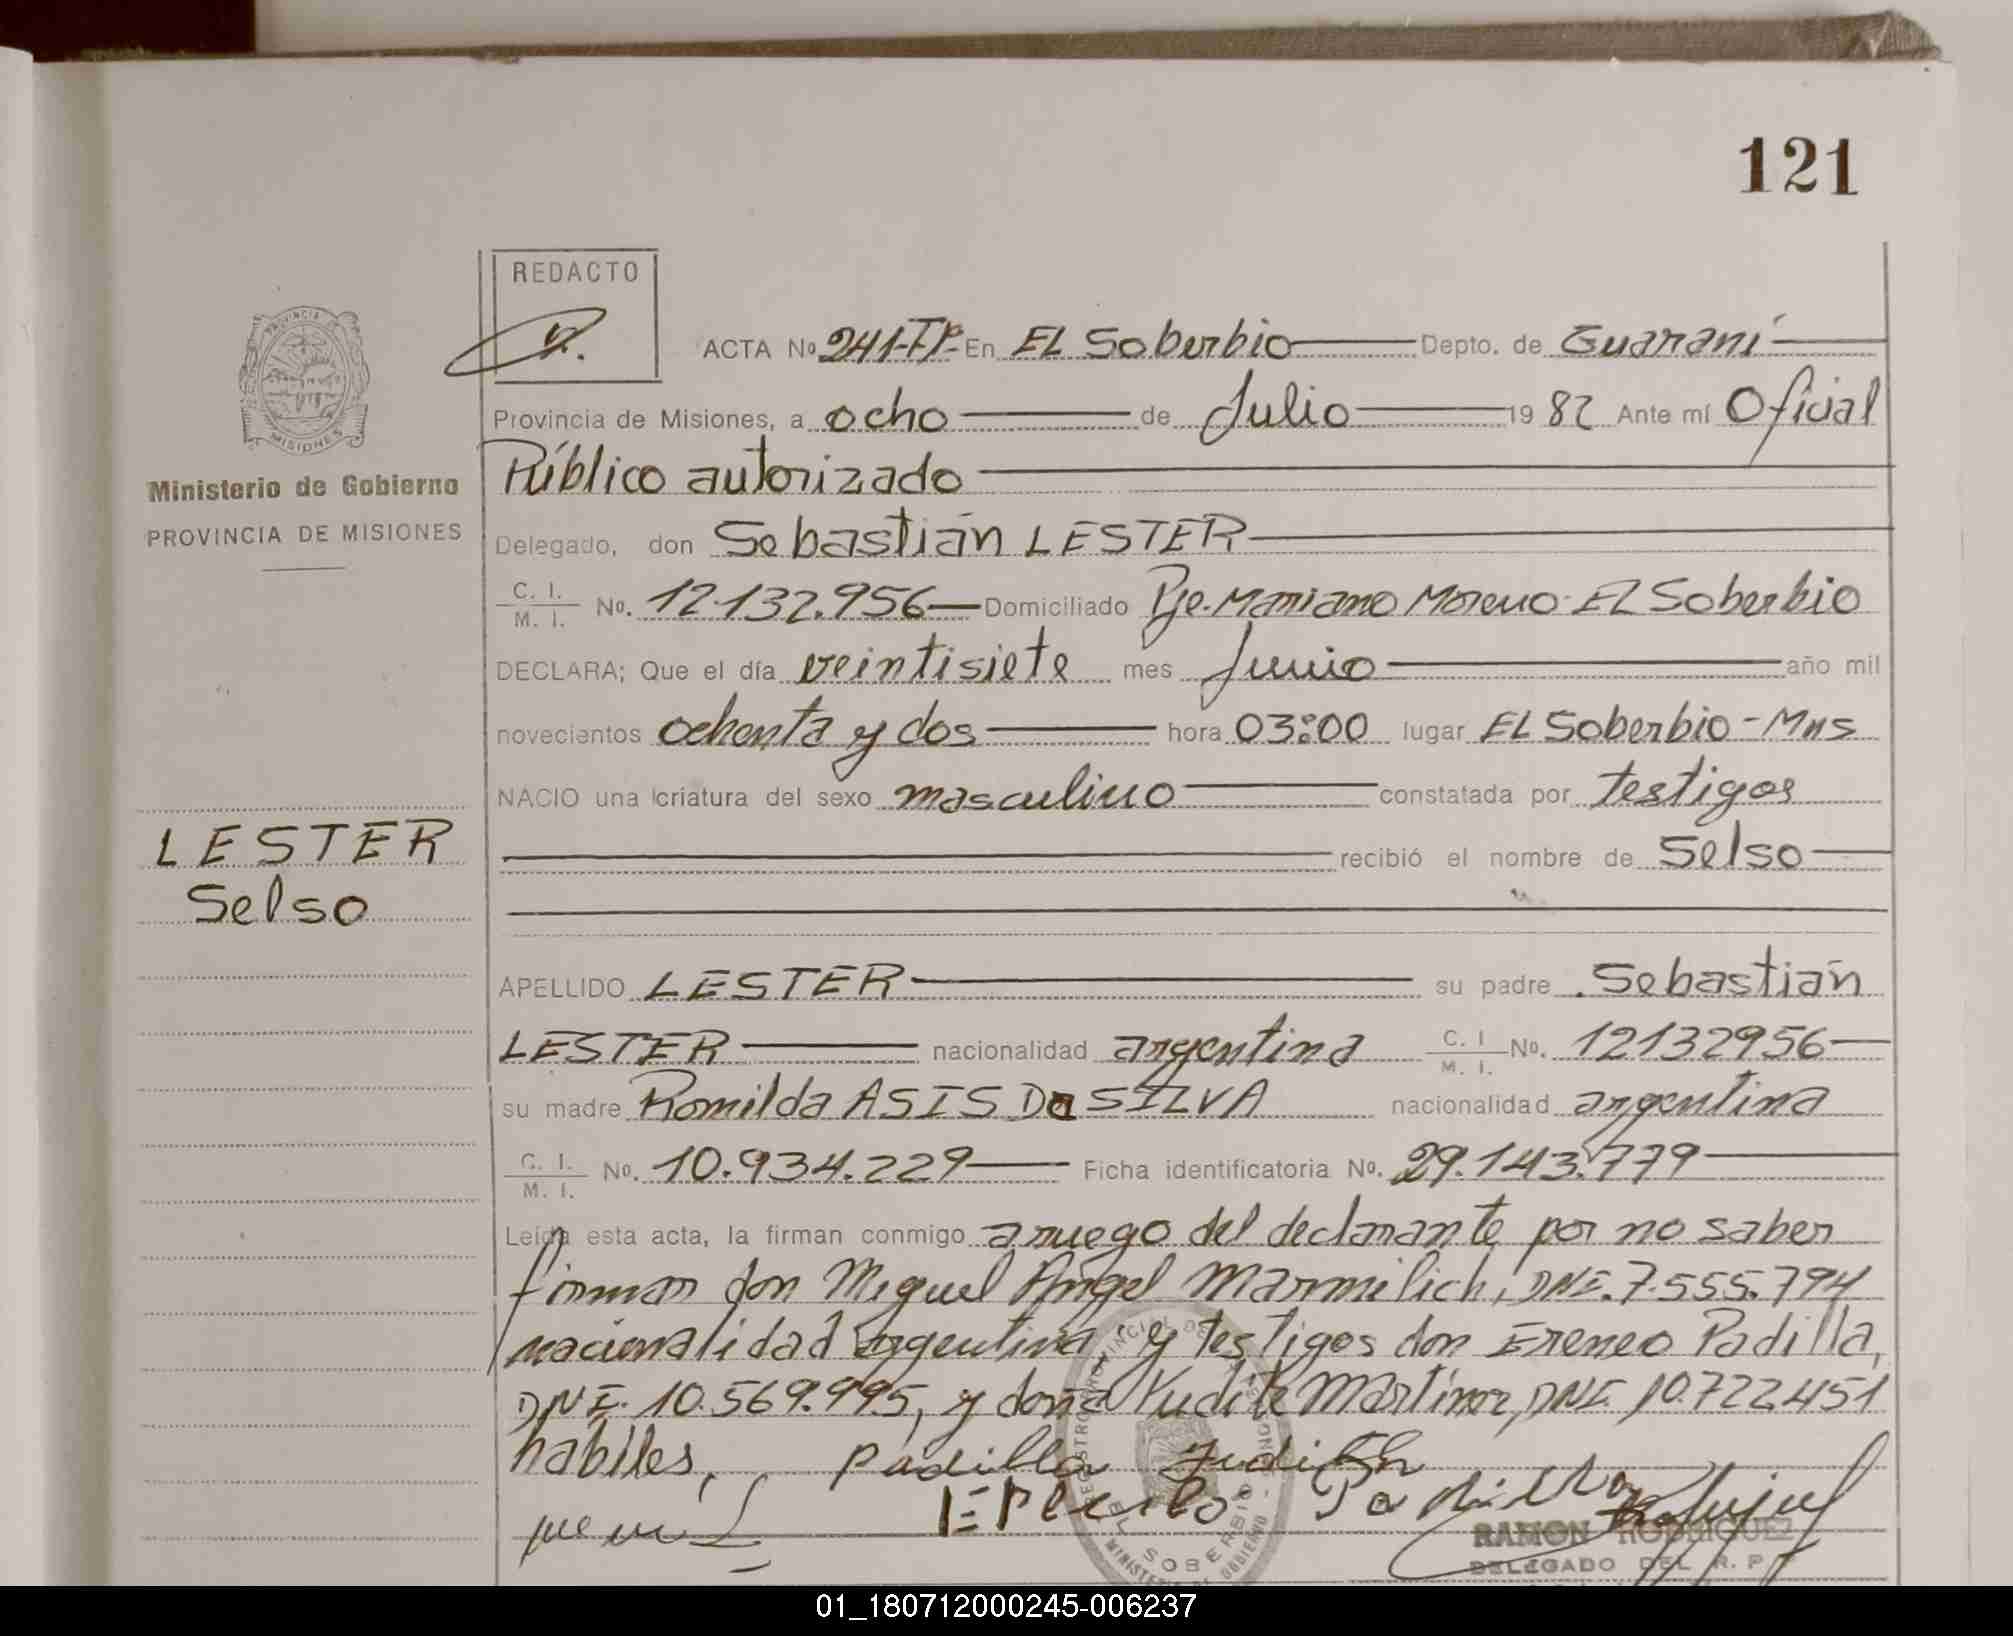 121
REDACTO
PROVINCIA DE
MISIONES
Ministerio de Gobierno
PROVINCIA DE MISIONES
LESTER
Selso
ACTA No 241-TP- En EL Soberbio Depto. de Guaraní
Provincia de Misiones, a ocho de Julio 1982 Ante mí Oficial
Público autorizado
Delegado, don Sebastián LESTER
C. I.
M. I. No. 12.132.956 Domiciliado Pje. Mariano Moreno - EL Soberbio
DECLARA; Que el día veintisiete mes Junio año mil
novecientos ochenta y dos hora 03:00 lugar EL Soberbio - Mns
NACIO una criatura del sexo masculino constatada por testigos
recibió el nombre de Selso
APELLIDO LESTER su padre Sebastián
LESTER nacionalidad argentina C. I. M. I. No. 12132956
su madre Romilda ASIS Da SILVA nacionalidad argentina
C. I.
M. I. No. 10.934.229 Ficha identificatoria No. 29.143.779
Leída esta acta, la firman conmigo a ruego del declarante por no saber
firmar don Miguel Angel Marmilich, DNI. 7.555.794
nacionalidad argentina, y testigos don Ereneo Padilla,
DNI. 10.569.995, y doña Yudite Martinez, DNI. 10.722.451
hábiles,
Padilla Judith
Padilla
RAMON RODRIGUEZ
DELEGADO DEL R. P.
EL SOBERBIO
01_180712000245-006237